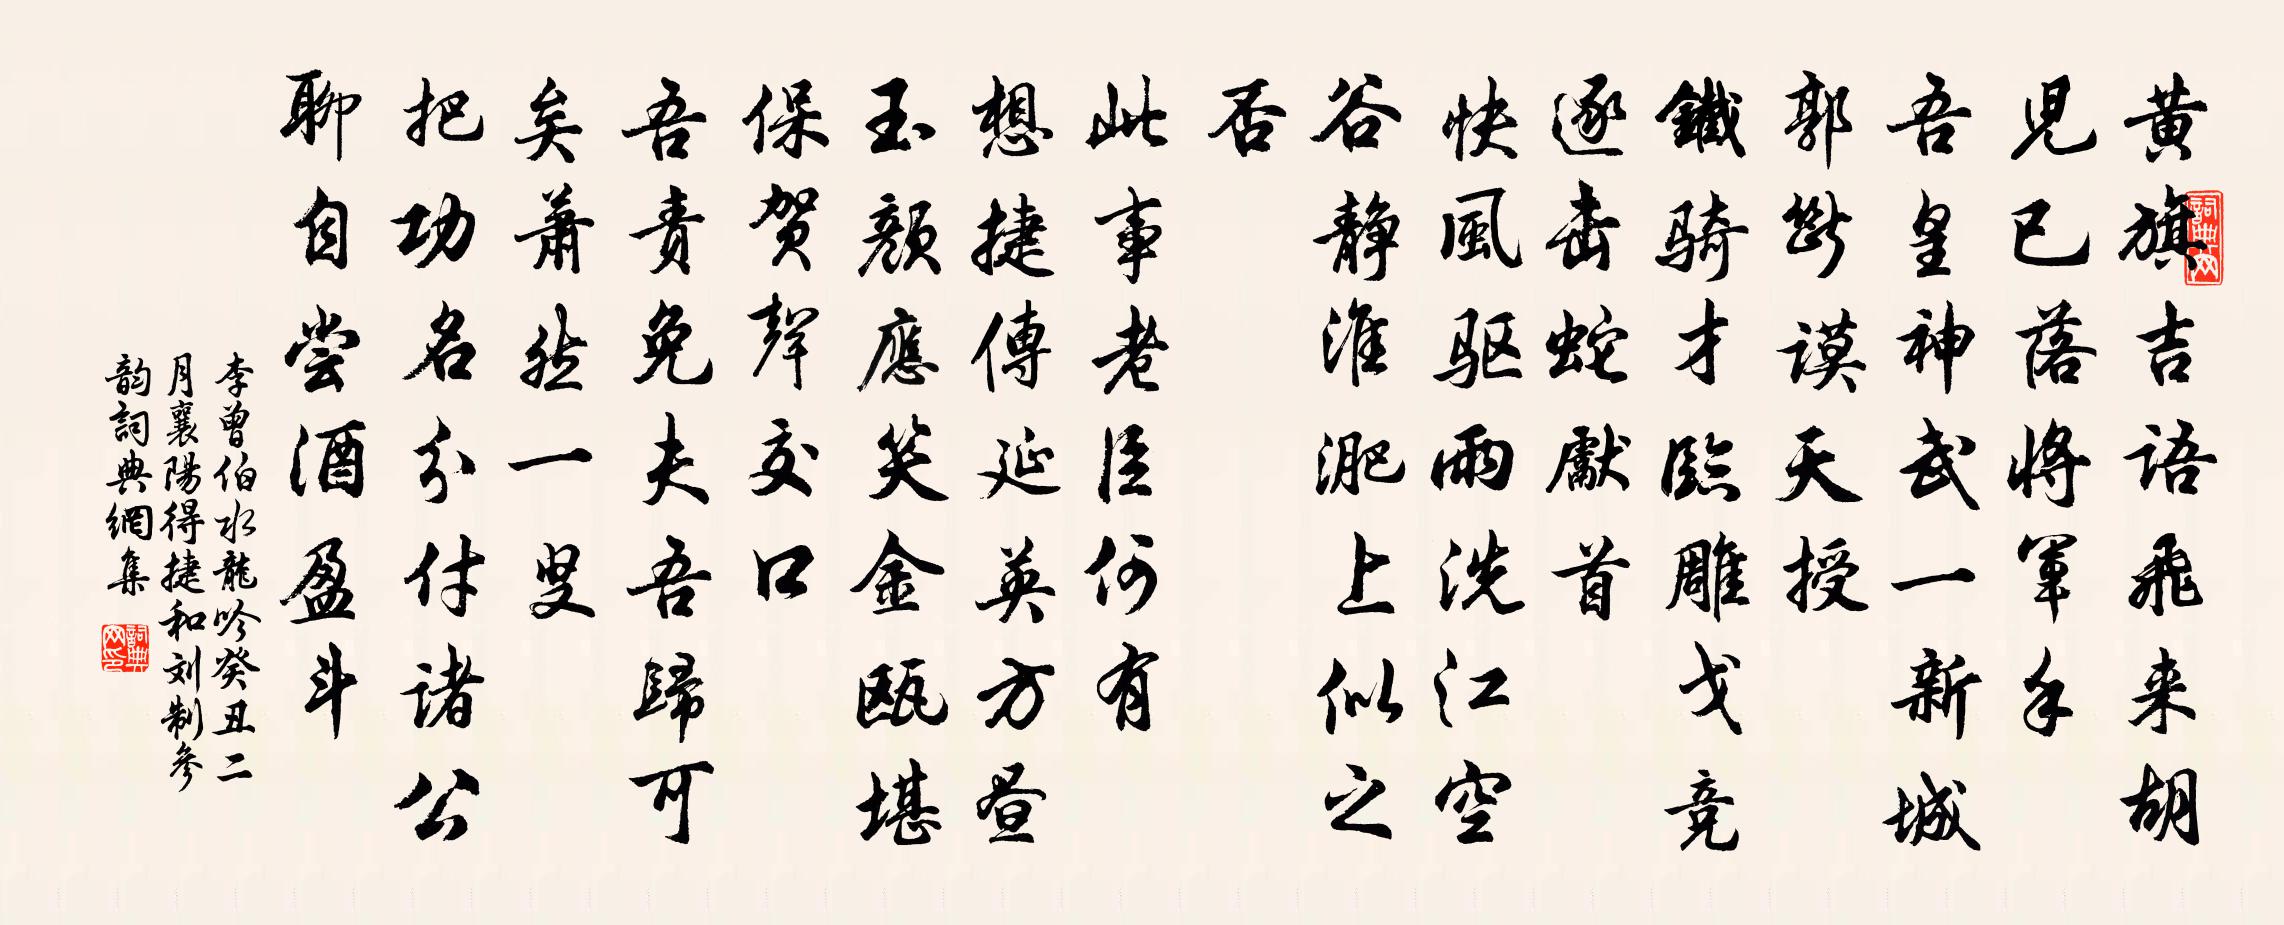 黄旗吉语飛来胡
児已落將軍手
吾皇神武一新城
郭斷谟天授
鐵骑才臨雕戈竞
逐击蛇獻首
快風驱雨洗江空
谷静淮淝上似之
否
此事老臣何有
想捷傳延英方昼
玉颜應笑金瓯堪
保贺聲交口
吾责免夫吾歸可
矣萧然一叟
把功名分付诸公
聊自尝酒盈斗
李曾伯水龍吟癸丑二
月襄陽得捷和刘制參
韵詞典網集
詞典网
詞典网印